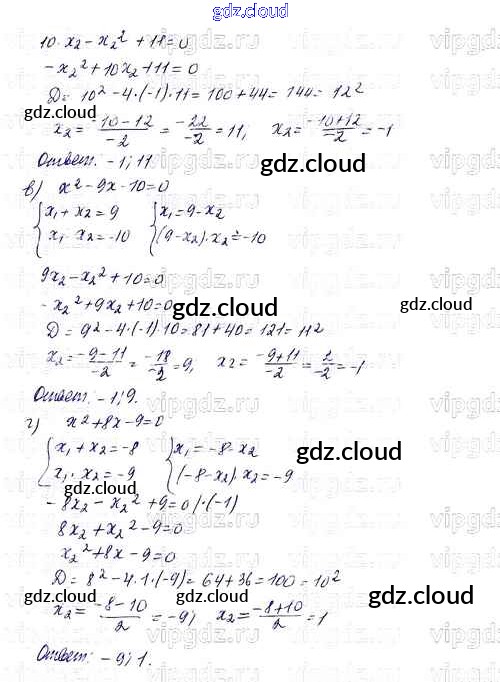 gdz.cloud
10·x₂ - x₂² + 11 = 0
-x₂² + 10x₂ + 11 = 0
D = 10² - 4·(-1)·11 = 100 + 44 = 144 = 12²
gdz.cloud
x₂ = -10-12/-2 = -22/-2 = 11, x₂ = -10+12/-2 = -1
Ответ: -1; 11
gdz.cloud
в) x² - 9x - 10 = 0
{x₁ + x₂ = 9 {x₁ = 9 - x₂
{x₁·x₂ = -10 {(9-x₂)·x₂ = -10
gdz.cloud
9x₂ - x₂² + 10 = 0
-x₂² + 9x₂ + 10 = 0
gdz.cloud gdz.cloud
D = 9² - 4·(-1)·10 = 81 + 40 = 121 = 11²
x₂ = -9-11/-2 = -18/-2 = 9, x₂ = -9+11/-2 = 2/-2 = -1
Ответ: -1; 9.
г) x² + 8x - 9 = 0
{x₁ + x₂ = -8 {x₁ = -8 - x₂
gdz.cloud
{x₁·x₂ = -9 {(-8-x₂)·x₂ = -9
gdz.cloud
-8x₂ - x₂² + 9 = 0 /·(-1)
8x₂ + x₂² - 9 = 0
x₂² + 8x - 9 = 0
D = 8² - 4·1·(-9) = 64 + 36 = 100 = 10²
gdz.cloud gdz.cloud
x₂ = -8-10/2 = -9; x₂ = -8+10/2 = 1
Ответ: -9; 1.
gdz.cloud
vipgdz.ru